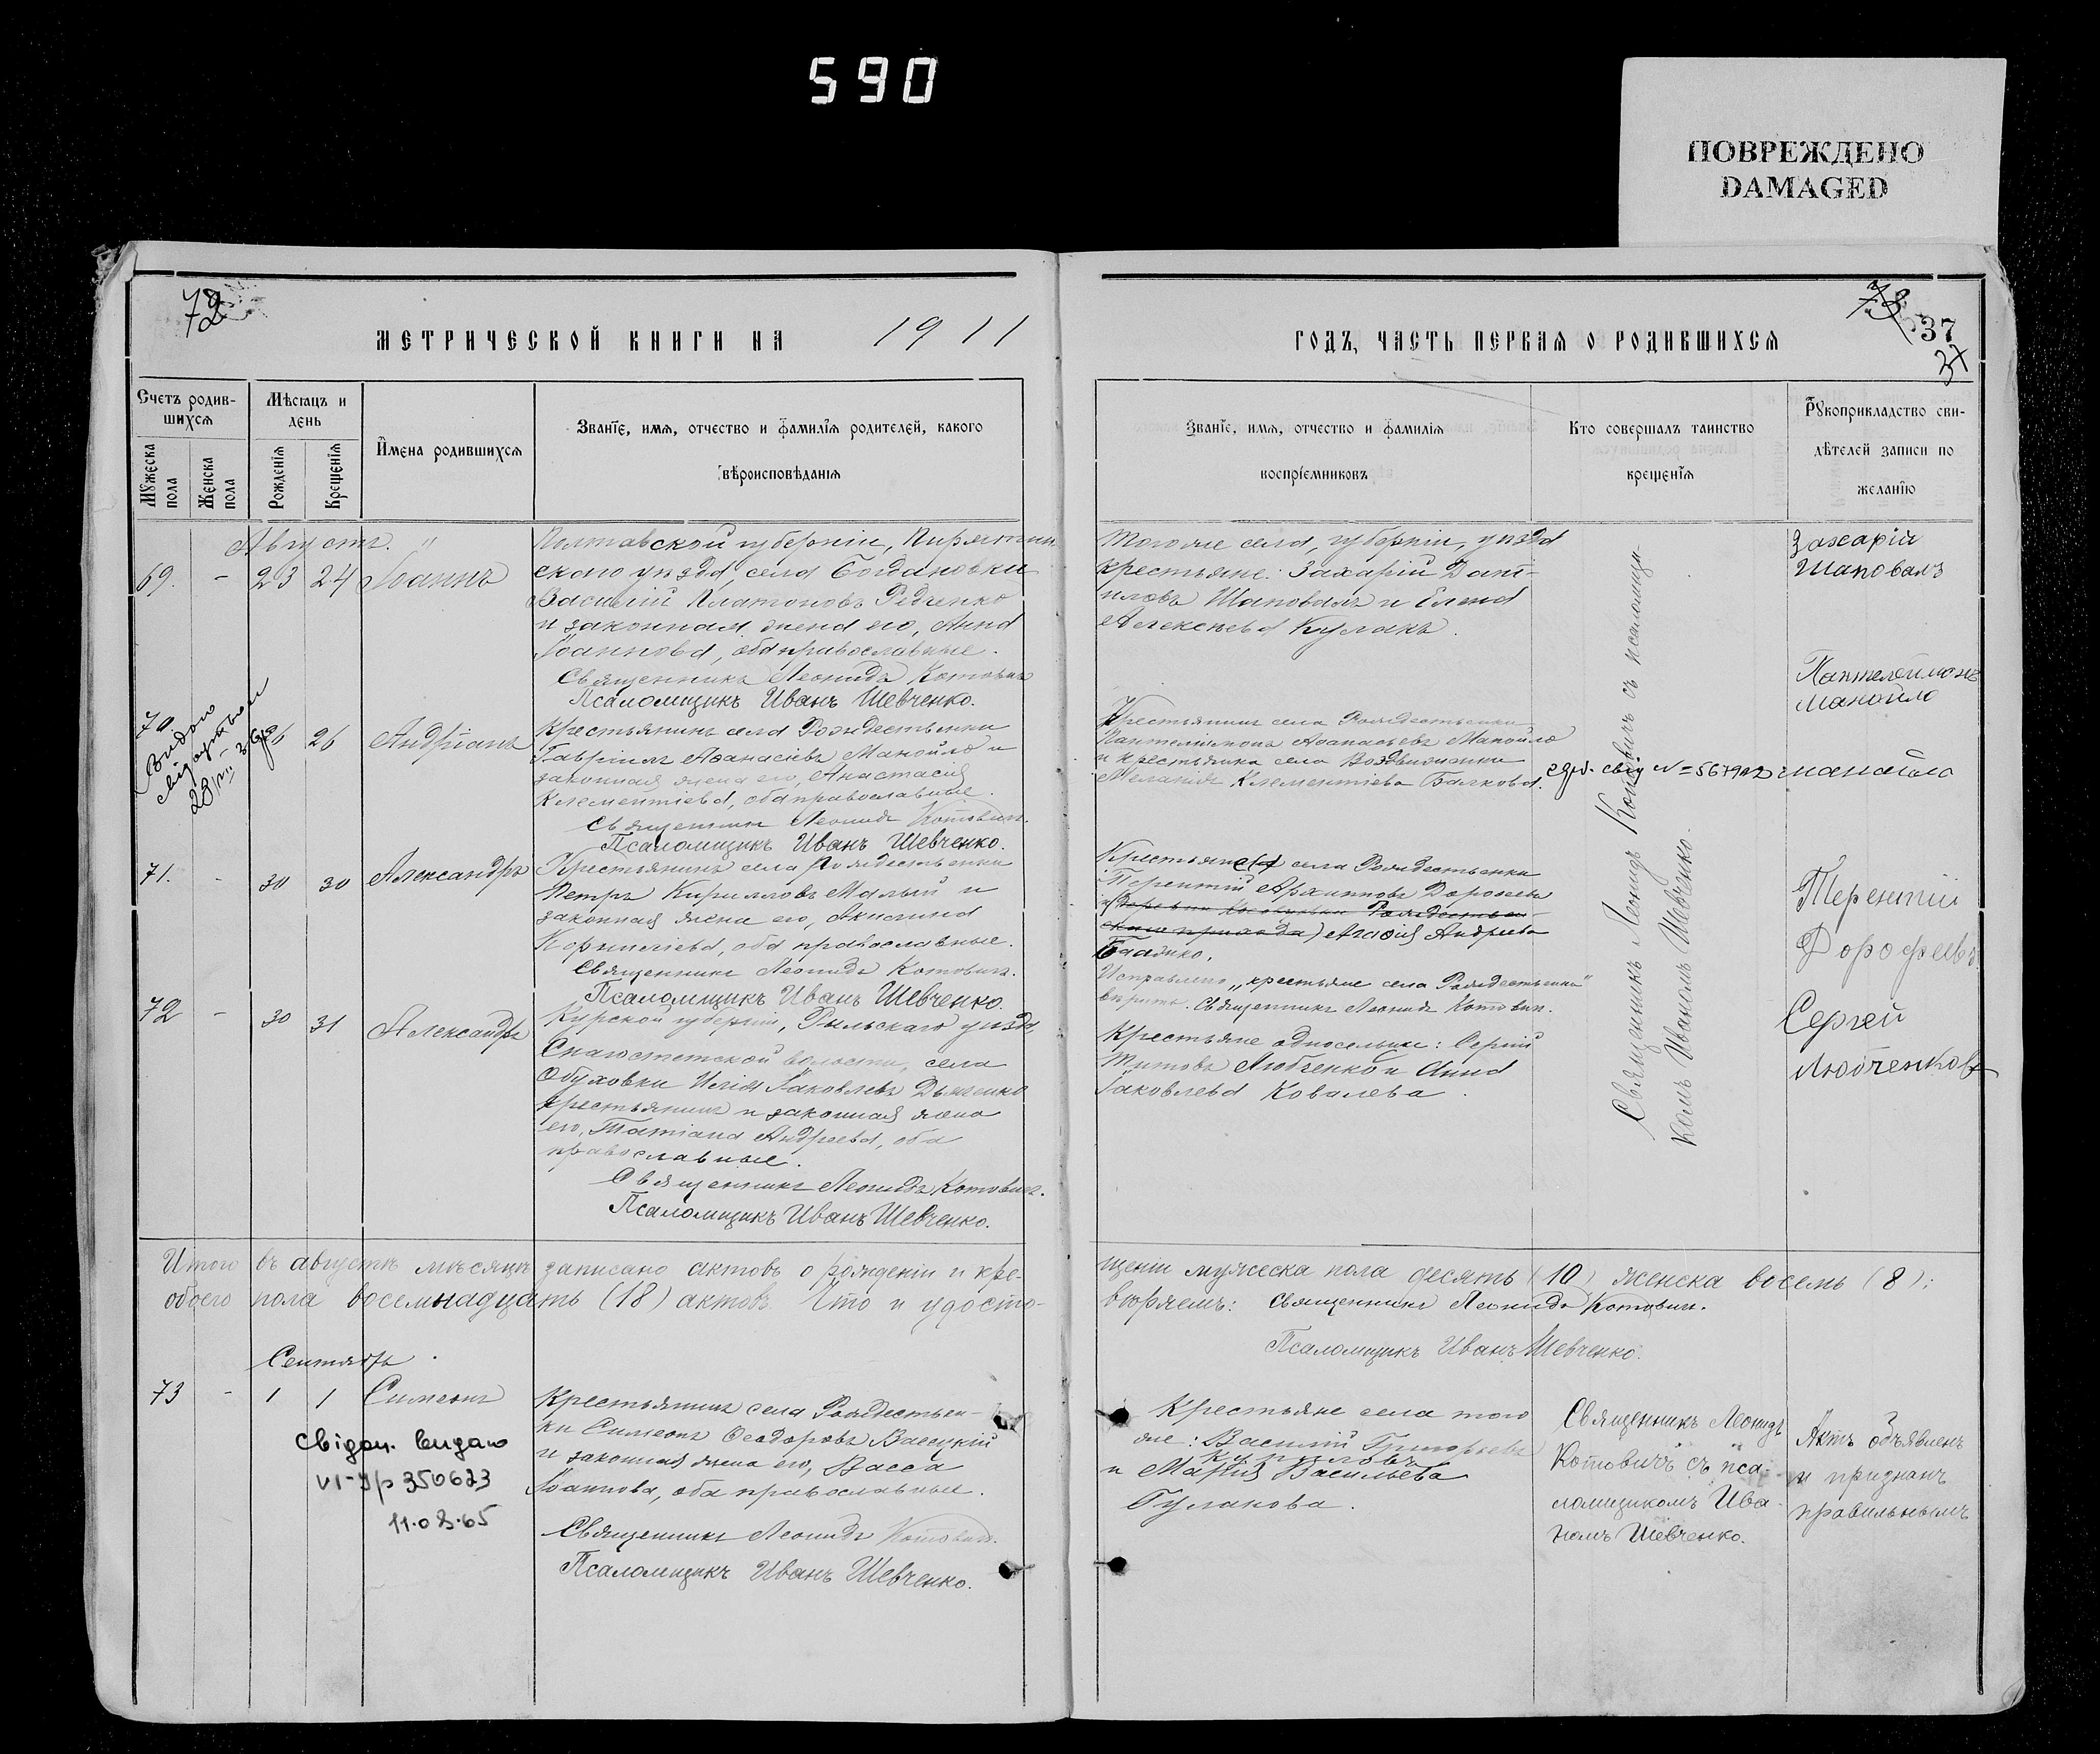 590
ПОВРЕЖДЕНО
DAMAGED
72
МЕТРИЧЕСКОЙ КНИГИ НА 1911
Счетъ родив-
шихся
Мѣсяцъ и
день
Мужеска
пола
Женска
пола
Рожденія
Крещенія
Имена родившихся
Званіе, имя, отчество и фамилія родителей, какого
вѣроисповѣданія
Августъ.
69. - 23 24 Іоаннъ
Полтавской губерніи, Пирятин
скаго уѣзда, села Богдановки
Василій Платоновъ Редченко
и законная жена его, Анна
Іоаннова, оба православные.
Священникъ Леонидъ Котовичъ
Псаломщикъ Иванъ Шевченко.
70 26 26 Андріанъ
Видано
Крестьянинъ села Рождественки
Гавріилъ Аѳанасіевъ Манойло и
законная жена его, Анастасія
Клементіева, оба православные.
Священникъ Леонидъ Котовичъ.
Псаломщикъ Иванъ Шевченко.
71. - 30 30 Александръ
Крестьянинъ села Рождественки
Петръ Кирилловъ Малый и
законная жена его, Акилина
Корнилієва, оба православные.
Священникъ Леонидъ Котовичъ.
Псаломщикъ Иванъ Шевченко.
72 - 30 31 Александръ
Курской губерніи, Рыльскаго уѣзда,
волости, села
Обуховки Илія Іаковлевъ Дьяченко
крестьянинъ и законная жена
его, Татіана Андреева, оба
православные.
Священникъ Леонидъ Котовичъ.
Псаломщикъ Иванъ Шевченко.
Итого въ августѣ мѣсяцѣ записано актовъ о рожденіи и кре-
обоего пола восемнадцать (18) актовъ. Что и удосто-
Сентябрь.
73 - 1 1 Симеонъ
Свідоц. видано
VI-ЗР 350623
11.08.65
Крестьянинъ села Рождествен-
ки Симеонъ Ѳеодоровъ
и законная жена его, Васса
Іоаннова, оба православные.
Священникъ Леонидъ Котовичъ.
Псаломщикъ Иванъ Шевченко.
73
37
37
ГОДЪ, ЧАСТЬ ПЕРВАЯ О РОДИВШИХСЯ
Званіе, имя, отчество и фамилія
воспріемниковъ
Кто совершалъ таинство
крещенія
Рукоприкладство сви-
дѣтелей записи по
желанію
Того же села, губерніи, уѣзда
крестьяне: Захарій Дани-
иловъ Шаповалъ и Елена
Алексѣева Кулакъ.
Захарій
Шаповалъ
Крестьянинъ села Рождественки
Пантелеимонъ Аѳанасьевъ Манойло
и крестьянка села Воздвиженки
Меланія Клементіева Балкова.
Пантелеймонъ
Манойло
манойло
Крестьяне села Рождественки
Терентій Архиповъ Дороѳеевъ
и Агаѳія Андреева
Исправлено „крестьяне села Рождественки"
вѣрить. Священникъ Леонидъ Котовичъ.
Терентій
Дорофеевъ
Крестьяне односельцы: Сергій
Титовъ Любченко и Анна
Іаковлева Ковалева.
Сергей
Любченковъ
Священникъ Леонидъ Котовичъ съ псаломщи-
комъ Иваномъ Шевченко.
щеніи мужеска пола десять (10), женска восемь (8);
вѣряемъ: Священникъ Леонидъ Котовичъ.
Псаломщикъ Иванъ Шевченко.
Крестьяне села того
же: Василій Григорьевъ
Кирилловъ
и Марія Васильева
Гулакова.
Священникъ Леонидъ
Котовичъ съ пса-
ломщикомъ Ива-
номъ Шевченко.
Актъ объявленъ
и признанъ
правильнымъ